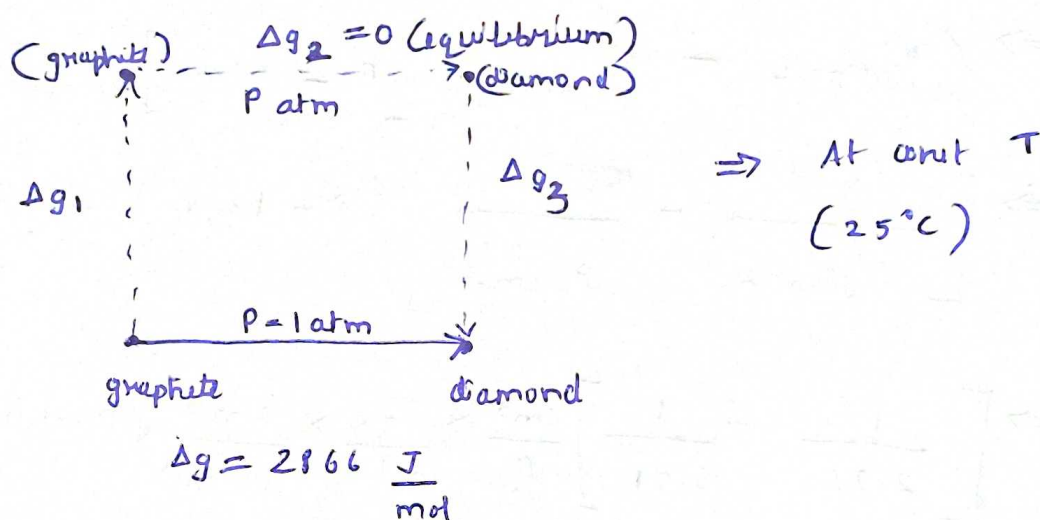 Δg₂ = 0 (equilibrium)
(graphite) (diamond)
P atm
Δg₁ Δg₃ ⇒ At const T
(25°C)
P = 1 atm
graphite diamond
Δg = 2866 J/mol